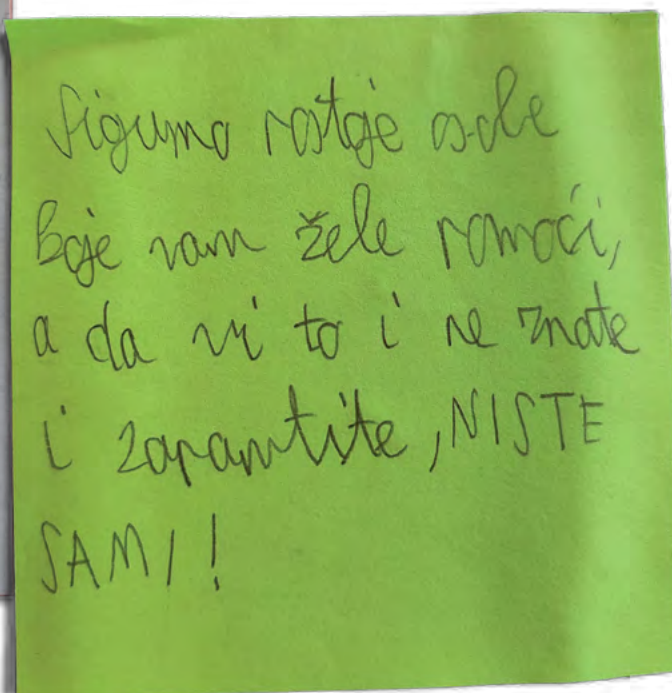 Sigurno postoje osobe
koje vam žele pomoći,
a da vi to i ne znate
i zapamtite, NISTE
SAMI!